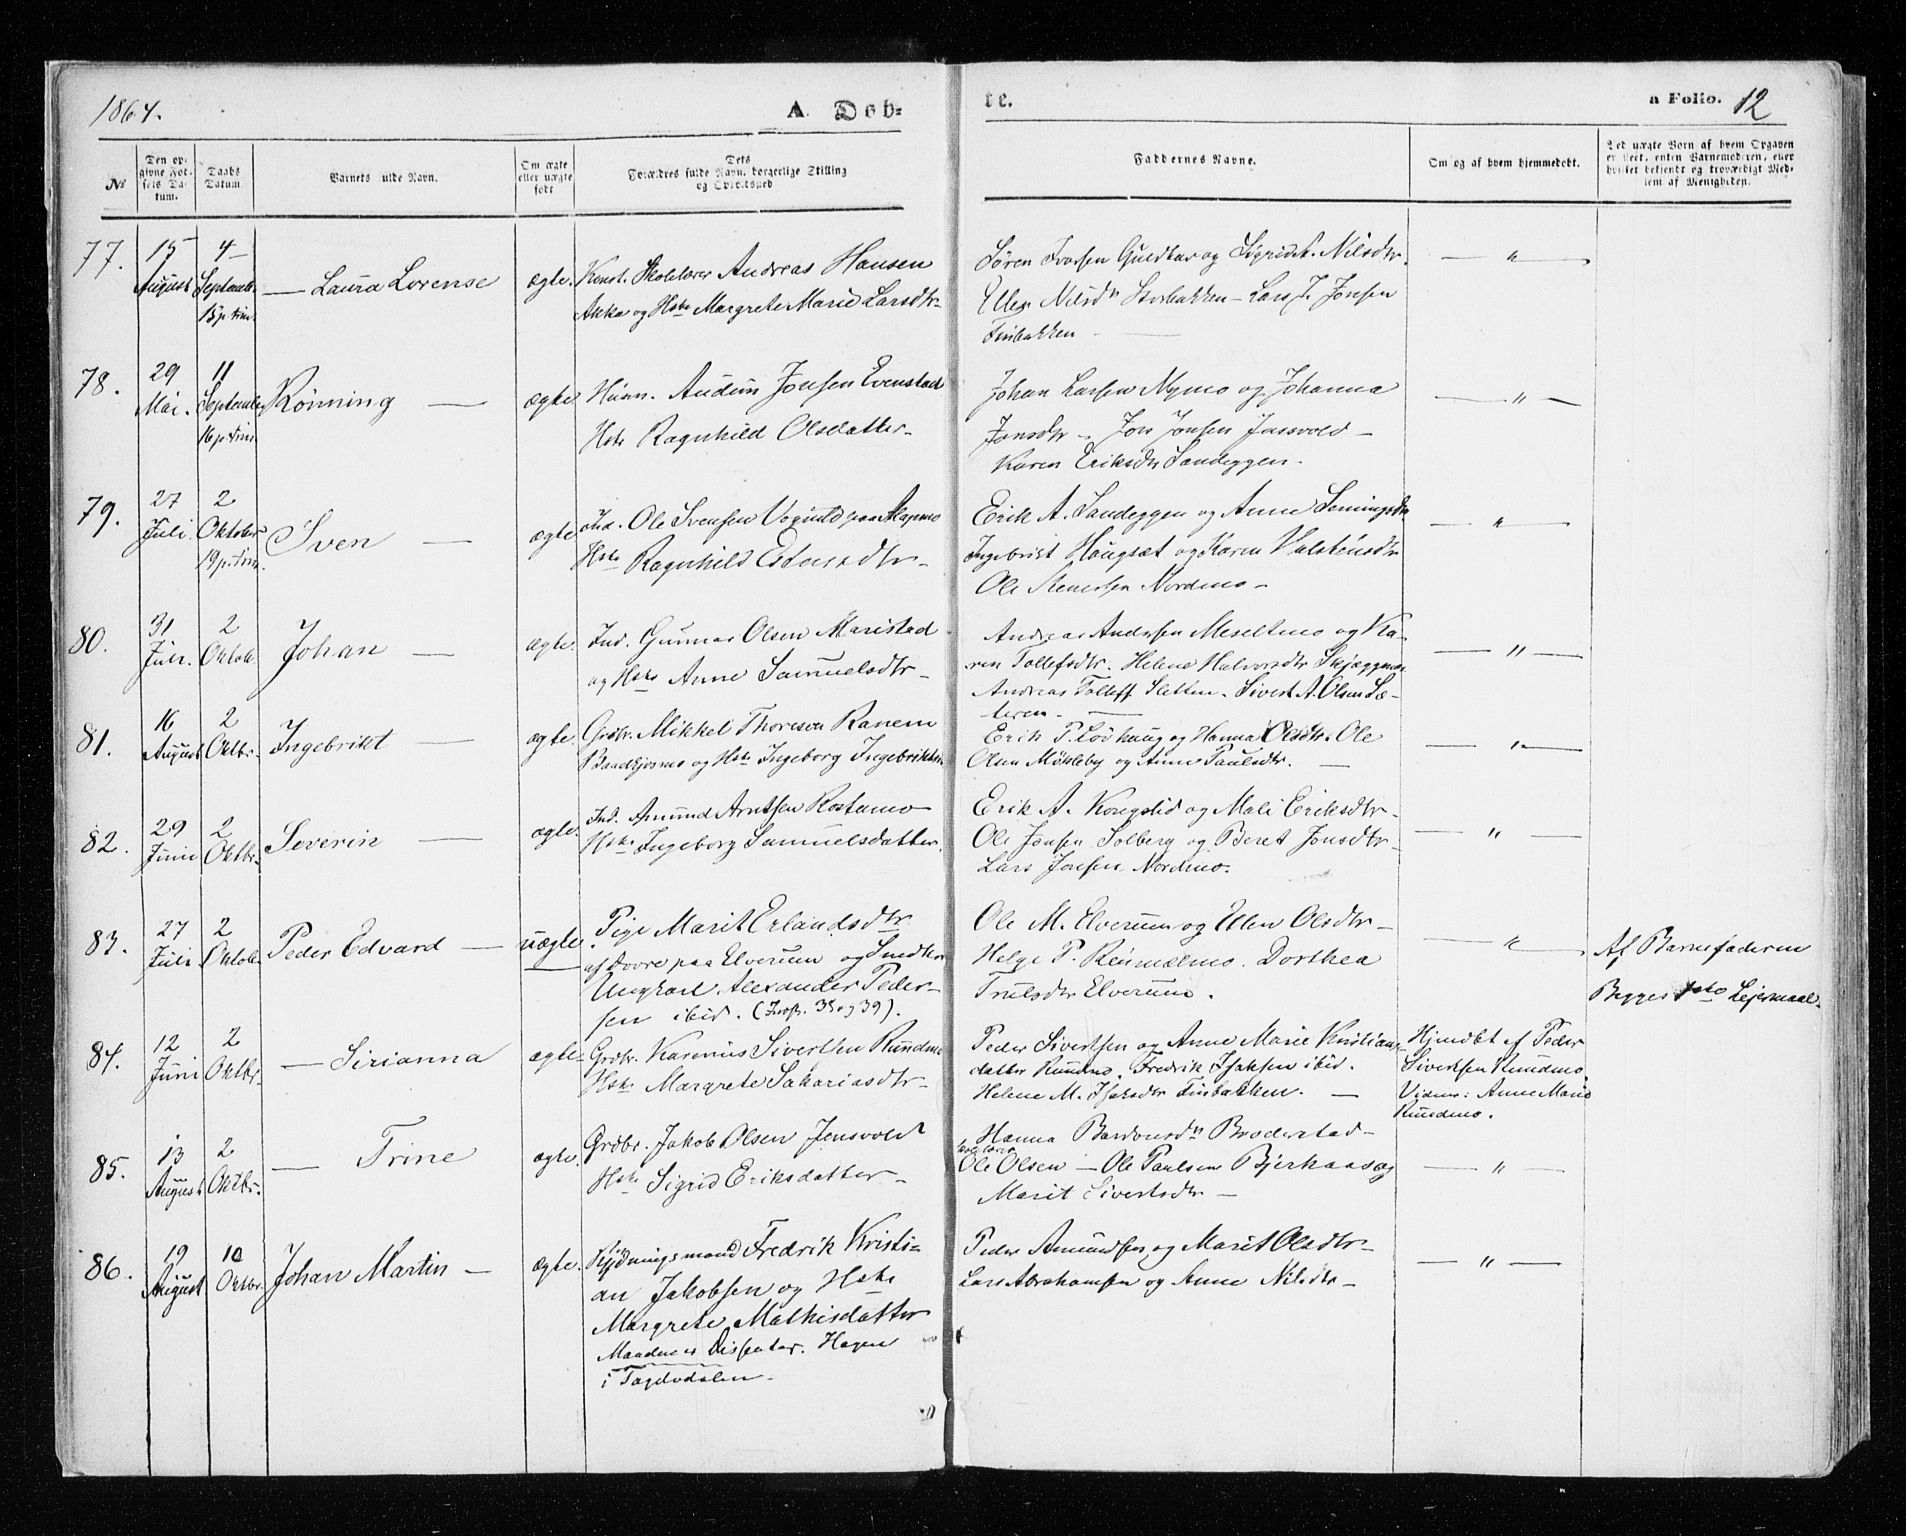 1864.
A. Døb-
te.
a Folio. 12
No
Den op-
givne Fød-
sels Da-
tum.
Daabs
Datum.
Barnets fulde Navn.
Om ægte
eller uægte
født
Dets
Forældres fulde Navn, borgerlige Stilling
og Opholdssted
Faddernes Navne.
Om og af hvem hjemmedøbt.
Ved uægte Børn af hvem Opgaven
er skeet, enten Barnemoderen, eller
hvilket bekjendt og troværdigt Med-
lem af Menigheden.
77.
15
August
4
Septemb.
15 p. trin.
— Laura Lorense
ægte.
Konst. Skolelærer Andreas Hansen
Akka og Hste Margrete Marie Larsdtr
Søren Ivarsen Guldhav og Sigrid A. Nilsdtr.
Ellen Nilsdtr Storbakken — Lars J. Jonsen
Finbakken —
— " —
78.
29
Mai.
11
September
16 p. trin.
Rønning —
ægte
Husm. Audun Jonsen Evenstad
Hste Ragnhild Olsdatter —
Johan Larsen Nymo og Johanna
Jonsdtr — Jon Jonsen
Karen Eriksdtr Sandeggen.
— " —
79.
27
Juli
2
Oktober
19 p. trin.
Sven —
ægte
Ind. Ole Svensen paa
Hste Ragnhild Estensdtr —
Erik A. Sandeggen og Anne Semingsdtr
Ingebrigt Haugsæt og Karen Halstensdtr
Ole Stenersen Nordmo —
— " —
80.
31
Juli.
2
Oktob.
Johan —
ægte.
Ind. Gunnar Olsen Maristad
og Hste Anne Samuelsdtr —
Andreas Andersen Meseltmo og Ka-
ren Tollefsdtr. Helene Halvorsdtr Skjæggmo
Andreas Tolleff Sletten. Sivert A. Olsen Sæ-
teren —
— " —
81.
16
August
2
Oktbr.
Ingebrikt —
ægte.
Grdbr. Mikkel Thoresen Ranem
og Hste Ingeborg Ingebriktsdtr
Erik P. Løvhaug og Hanna Olsdtr. Ole
Olsen Møkleby og Anne Paulsdtr. —
— " —
82.
29
Juni
2
Oktbr.
Severin —
ægte.
Ind. Amund Arntsen Rostamo
Hste Ingeborg Samuelsdatter.
Erik A. Kongslid og Mali Eriksdtr —
Ole Jonsen Solberg og Beret Jonsdtr —
Lars Jonsen Nordmo.
— " —
83.
27
Juli
2
Oktob.
Peder Edvard —
uægte
Pige Marit Erlandsdtr
af Dovre paa Elverum og
Ungkarl Alexander Peder-
sen ibid. (Jnfr. 35 og 39).
Ole M. Elverum og Ellen Olsdtr —
Helge P. Reinmælmo. Dorthea
Trulsdtr Elverum.
— " —
Af Barnefaderen
Begges 1ste Lejermaal.
84.
12
Juni
2
Oktbr.
— Sirianna
ægte
Grdbr. Karenus Sivertsen Rundmo
Hste Margrete Sakariasdtr —
Peder Sivertsen og Anne Marie Kristians-
datter Rundmo. Fredrik Isaksen ibid.
Helene M. Isaksdtr Finbakken. —
Hjmdbt af Peder
Sivertsen Rundmo.
Vidner: Anne Marie
Rundmo.
85.
13
August
2
Oktbr.
— Trine
ægte.
Grdbr. Jakob Olsen Jensvold
Hste Sigrid Eriksdatter —
Hanna Bardonsdtr Broderstad —
Ole Olsen — Ole Paulsen Bjerkaas og
Marit Sivertsdtr —
— " —
86.
19
August
10
Oktbr.
Johan Martin —
ægte.
Rydningsmand Fredrik Kristi-
an Jakobsen og Hste
Margrete Mathisdatter
Manden er Dissenter. Hagen
i Tagelvdalen.
Peder Amundsen og Marit Olsdtr —
Lars Abrahamsen og Anne Nilsdtr —
— " —